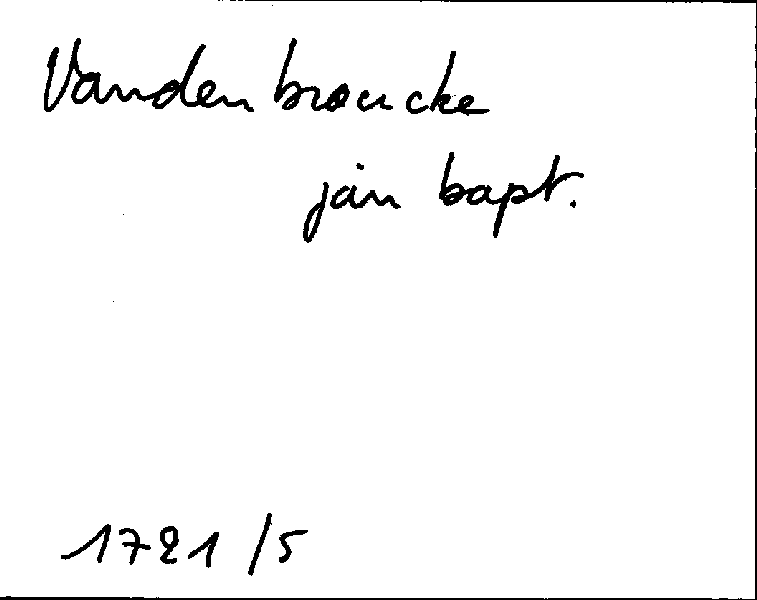 Vanden broucke
jan bapt.
1721 /5